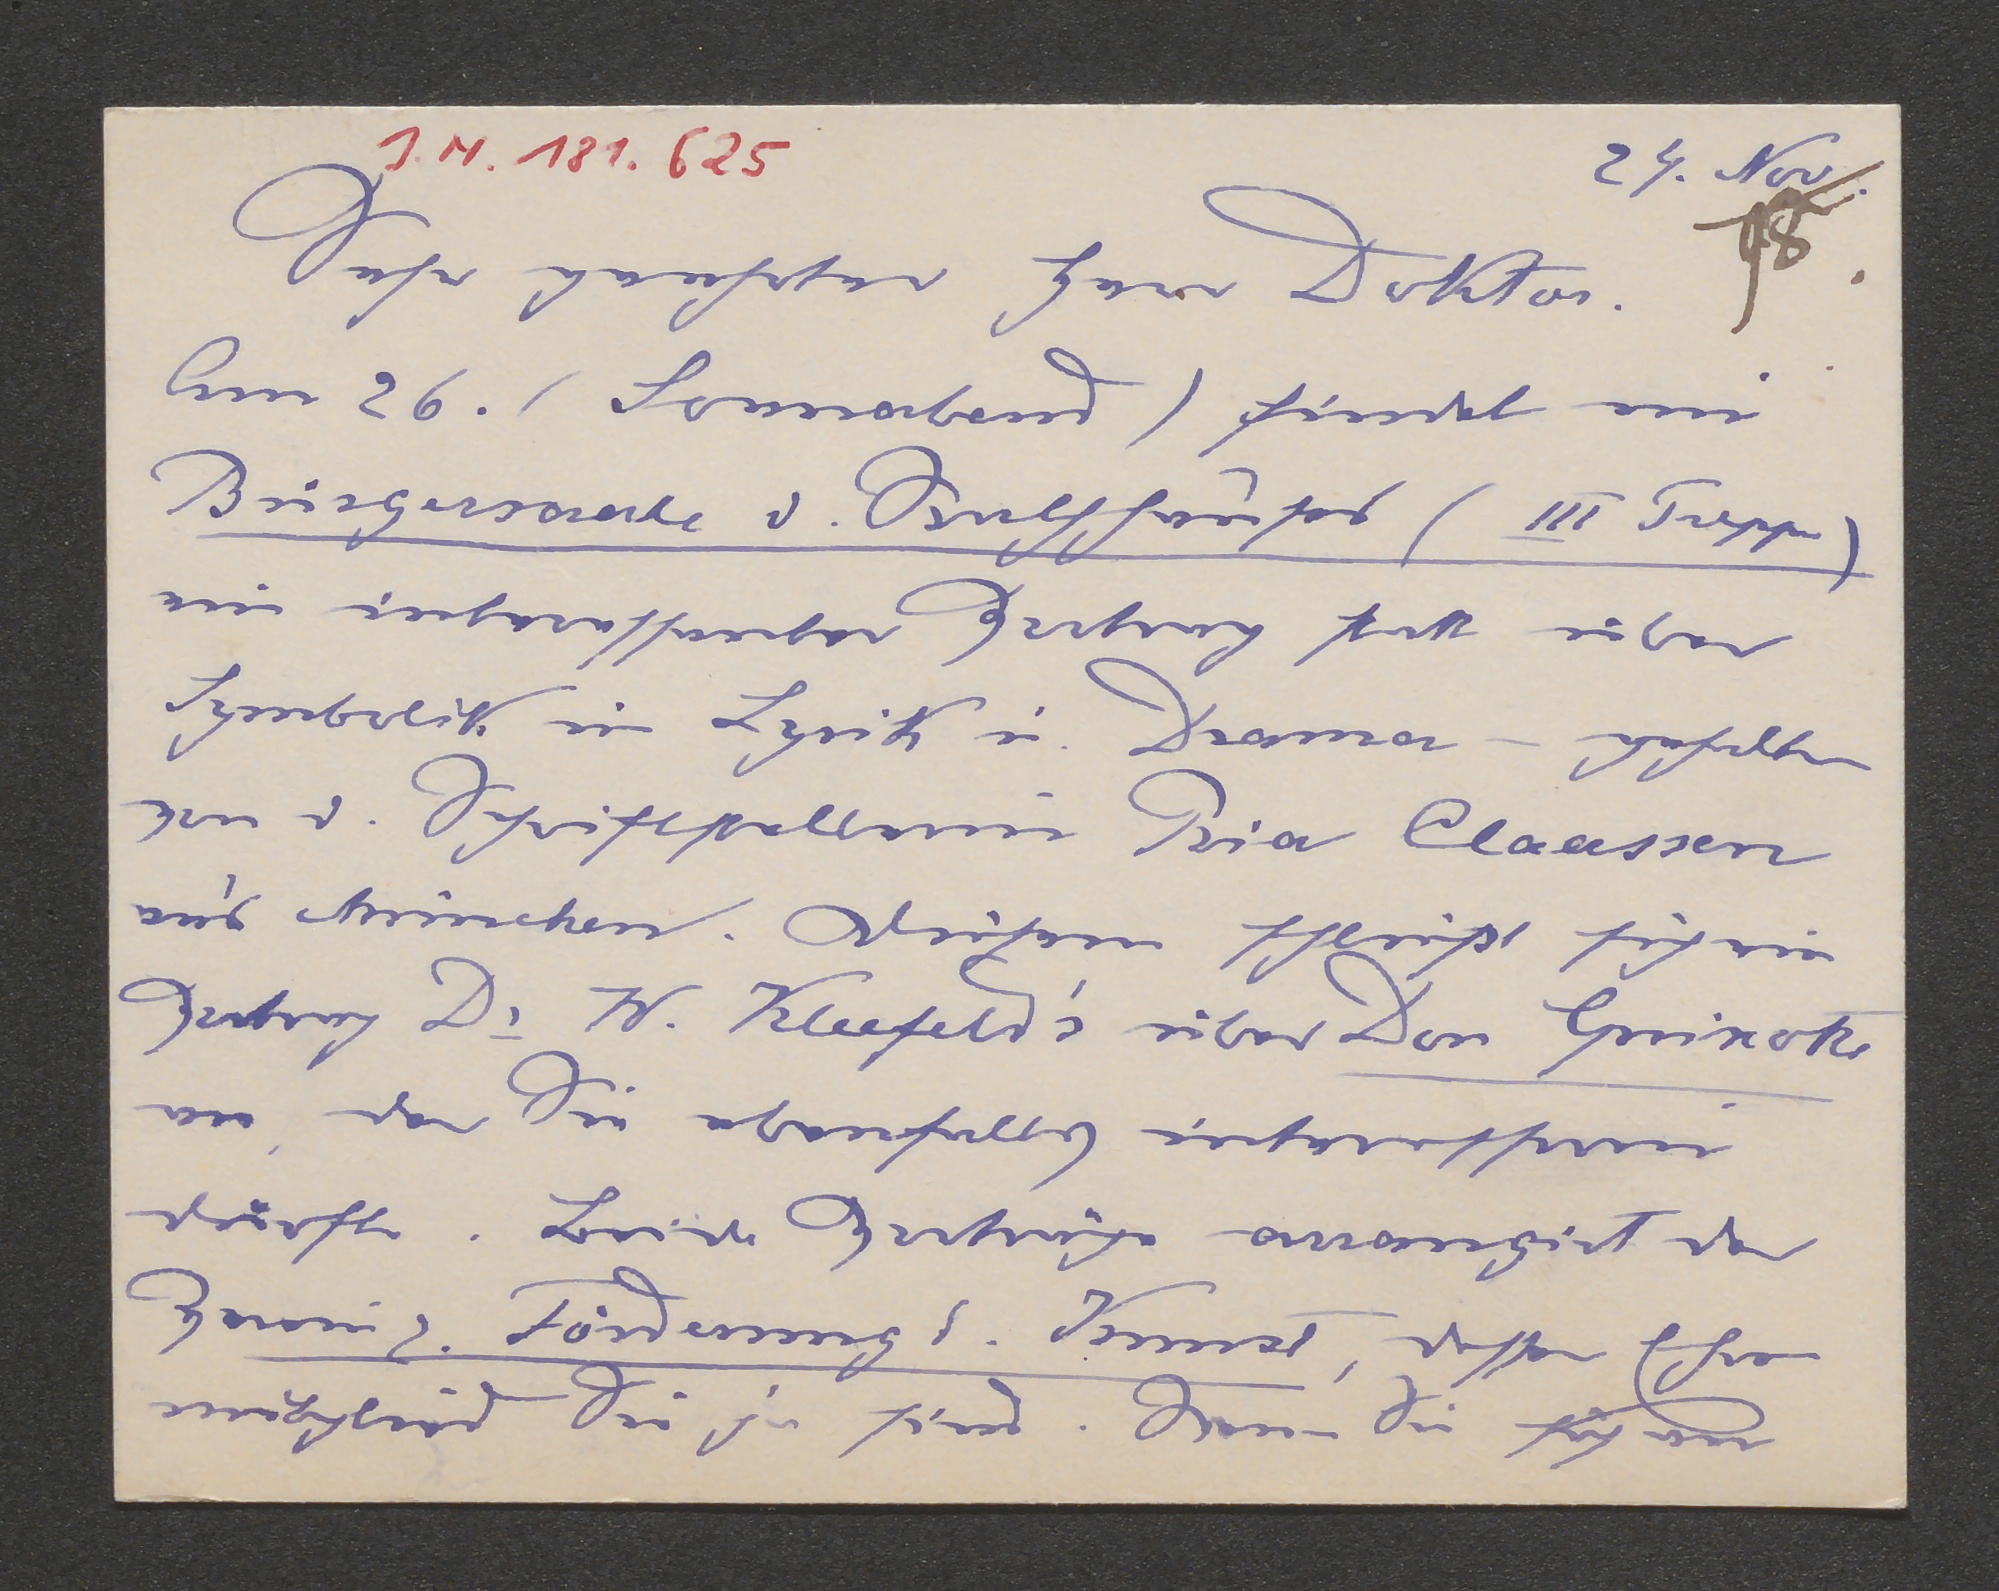 J. N. 181.625
24. Nov.
98.
Sehr geehrter Herr Doktor.
Am 26. (Sonnabend) findet im
Bürgersaale d. Rathhauses (III Treppe)
ein interessanter Vortrag statt über
Symbolik in Lyrik u. Drama - gehalten
von d. Schriftstellerin Ria Claassen
aus München. Diesem schließt sich ein
Vortrag Dr W. Kleefeld's über Don Quixote
an, der Sie ebenfalls interessiren
dürfte. Beide Vorträge arrangirt der
Verein z. Förderung d. Kunst, dessen Ehren
mitglied Sie ja sind. Wenn Sie sich an